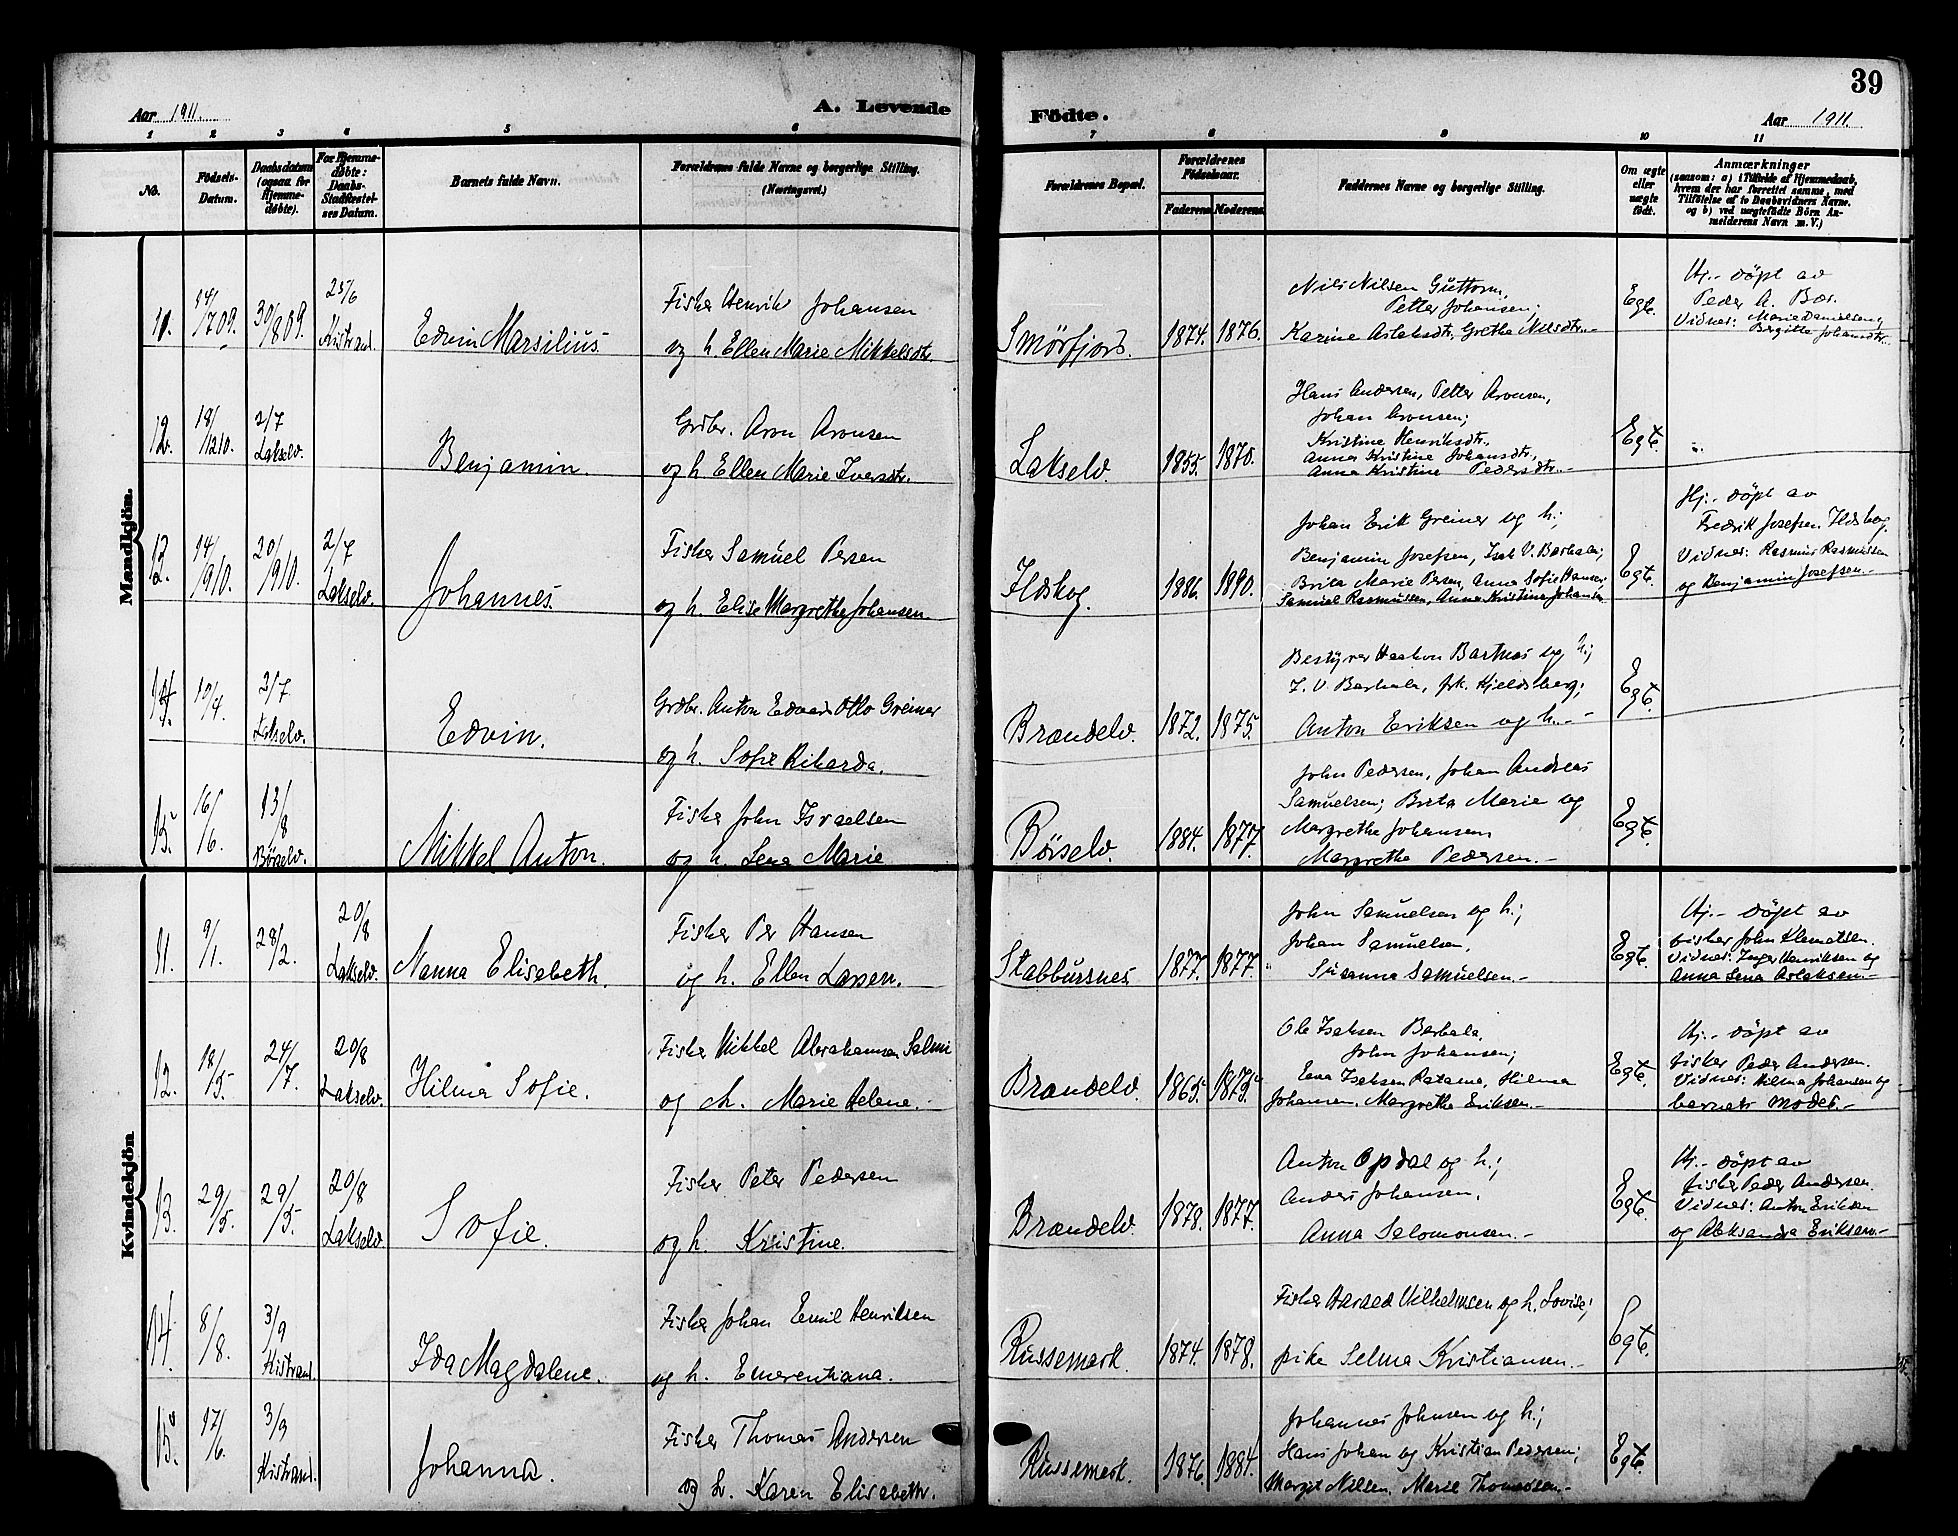 39
Aar 1911.
A. Levende
Fødte.
Aar 1911.
1 2 3 4 5 6 7 8 9 10 11
No.
Fødsels-
Datum.
Daabsdatum
(ogsaa for
Hjemme-
døbte).
For Hjemme-
døbte:
Daabs-
Stadfæstel-
ses Datum.
Barnets fulde Navn.
Forældrenes fulde Navne og borgerlige Stilling.
(Næringsvei.)
Forældrenes Bopæl.
Forældrenes
Fødselsaar.
Faderens
Moderens
Faddernes Navne og borgerlige Stilling.
Om ægte
eller
uægte
født.
Anmærkninger
(saasom: a) i Tilfælde af Hjemmedaab,
hvem der har forrettet samme, med
Tilføielse af to Daabsvidners Navne,
og b) ved uægtefødte Børn An-
melderens Navn m. V.)
Mandkjön.
11.
14/709.
30/809.
25/6
Kistrand
Edvin Marsilius.
Fisker Henrik Johansen
og h. Ellen Marie Mikkelsdtr.
Smörfjord.
1874.
1876.
Nils Nilsen Guttorm,
Petter Johansen;
Karine Aslaksdtr, Grethe Nilsdtr.-
Egte.
Hj.- döpt av
Peder A. Bær.
Vidner: Marie Danielsen,
Bergitte Johansdtr.
12.
18/1210.
2/7
Lakselv.
Benjamin.
Grdbr. Aron Aronsen
og h. Ellen Marie Iversdtr.
Lakselv.
1855.
1870.
Hans Andersen, Petter Aronsen,
Johan Aronsen;
Kristine Henriksdtr.
Anna Kristine Johansdtr,
Anna Kristine Pedersdtr.-
Egte.
13.
14/910.
20/910.
2/7
Lakselv.
Johannes.
Fisker Samuel Persen
og h. Elise Margrethe Johansen.
Ildskog.
1886.
1890.
Johan Erik Greiner og h.;
Benjamin Josefsen, Isak V. Barhala;
Brita Marie Persen, Anna Sofie Hansen,
Samuel Rasmussen, Anna Kristine Johansen
Egte.
Hj.- döpt av
Fredrik Josefsen, Ildskog.
Vidner: Rasmus Rasmussen
og Benjamin Josefsen.-
14.
10/4.
2/7
Lakselv.
Edvin.
Grdbr. Anton Edvard Otto Greiner
og h. Sofie Rikarda.
Brændelv.
1872.
1875.
Bestyrer Haakon Bartnes og h.;
I. V. Barhala, frk. Kjeldsberg;
Anton Eriksen og h.-
Egte.
15.
16/6.
13/8
Börselv.
Mikkel Anton.
Fisker John Israelsen
og h. Lena Marie
Börselv.
1884.
1877.
John Pedersen, Johan Andreas
Samuelsen; Brita Marie og
Margrethe Johansen
Margrethe Pedersen.-
Egte.
Kvindekjön
11.
9/1.
28/2.
20/8
Lakselv.
Nanna Elisabeth.
Fisker Per Hansen
og h. Ellen Larsen.
Stabbursnes
1877.
1877.
John Samuelsen og h.;
Johan Samuelsen,
Susanna Samuelsen.-
Egte.
Hj.- döpt av
fisker John Klemetsen.
Vidner: Inger Henriksen og
Anna Lena Aslaksen.-
12.
18/5.
24/7.
20/8
Lakselv.
Hilma Sofie.
Fisker Mikkel Abrahamsen Salmi
og h. Marie Helene.-
Brændelv.
1865.
1873.
Ole Isaksen Barhala,
John Johansen;
Eena Isaksen Ratama, Hilma
Johansen, Margrethe Eriksen.-
Egte.
Hj.- döpt av
fisker Peder Andersen.
Vidner: Hilma Johansen og
barnets moder.-
13.
29/5.
29/5.
20/8
Lakselv.
Sofie.
Fisker Peter Pedersen
og h. Kristine.
Brændelv.
1878.
1877.
Anton Opdal og h.;
Anders Johansen,
Anna Salomonsen.-
Egte.
Hj.- döpt av
fisker Peder Andersen.
Vidner: Anton Eriksen
og Aleksandra Eriksen.-
14.
8/8.
3/9
Kistrand.
Ida Magdalene.
Fisker Johan Emil Henriksen
og h. Emerentiana.
Russemark.
1874.
1878.
Fisker Harald Vilhelmsen og h. Lovise;
pike Selma Kristiansen.-
Egte.
15.
17/6.
3/9
Kistrand.
Johanna.
Fisker Thomas Andersen
og h. Karen Elisabeth.
Russemark.
1876.
1884.
Johannes Johnsen og h.;
Hans Johan og Kristian Pedersen;
Margit Nilsen, Marie Thomassen.-
Egte.